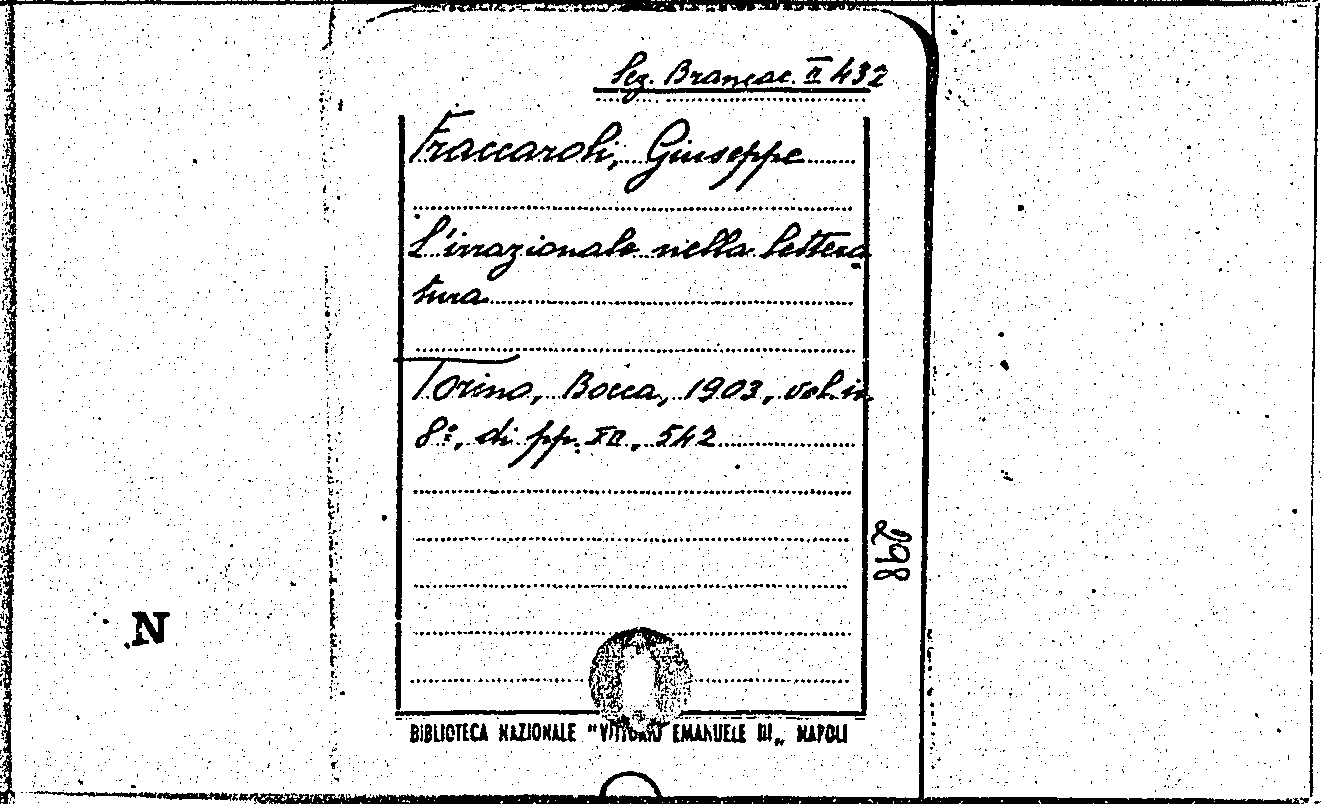 Sez. Brancac. II 432
Fraccaroli, Giuseppe
L'irrazionale nella lettera
tura
Torino, Bocca, 1903, vol. in
8º, di pp. XII, 542
298
N
BIBLIOTECA NAZIONALE "VITTORIO EMANUELE III„ NAPOLI